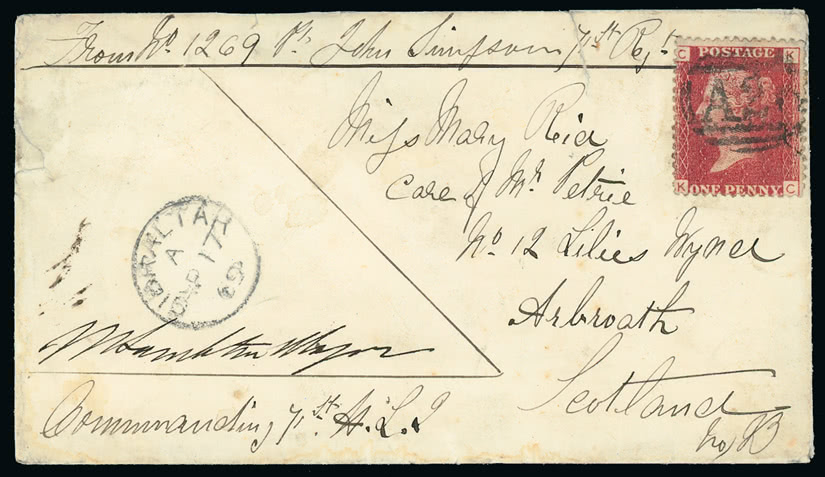 From No 1269 Pt John Simpson 71st Regt
C POSTAGE K
A26
K ONE PENNY C
Miss Mary Reid
Care of Mr Petrie
No 12 Lilies Wynd
Arbroath
Scotland
N.B
GIBRALTAR
A
AP 17
69
Major
Commanding 71st H.L.I